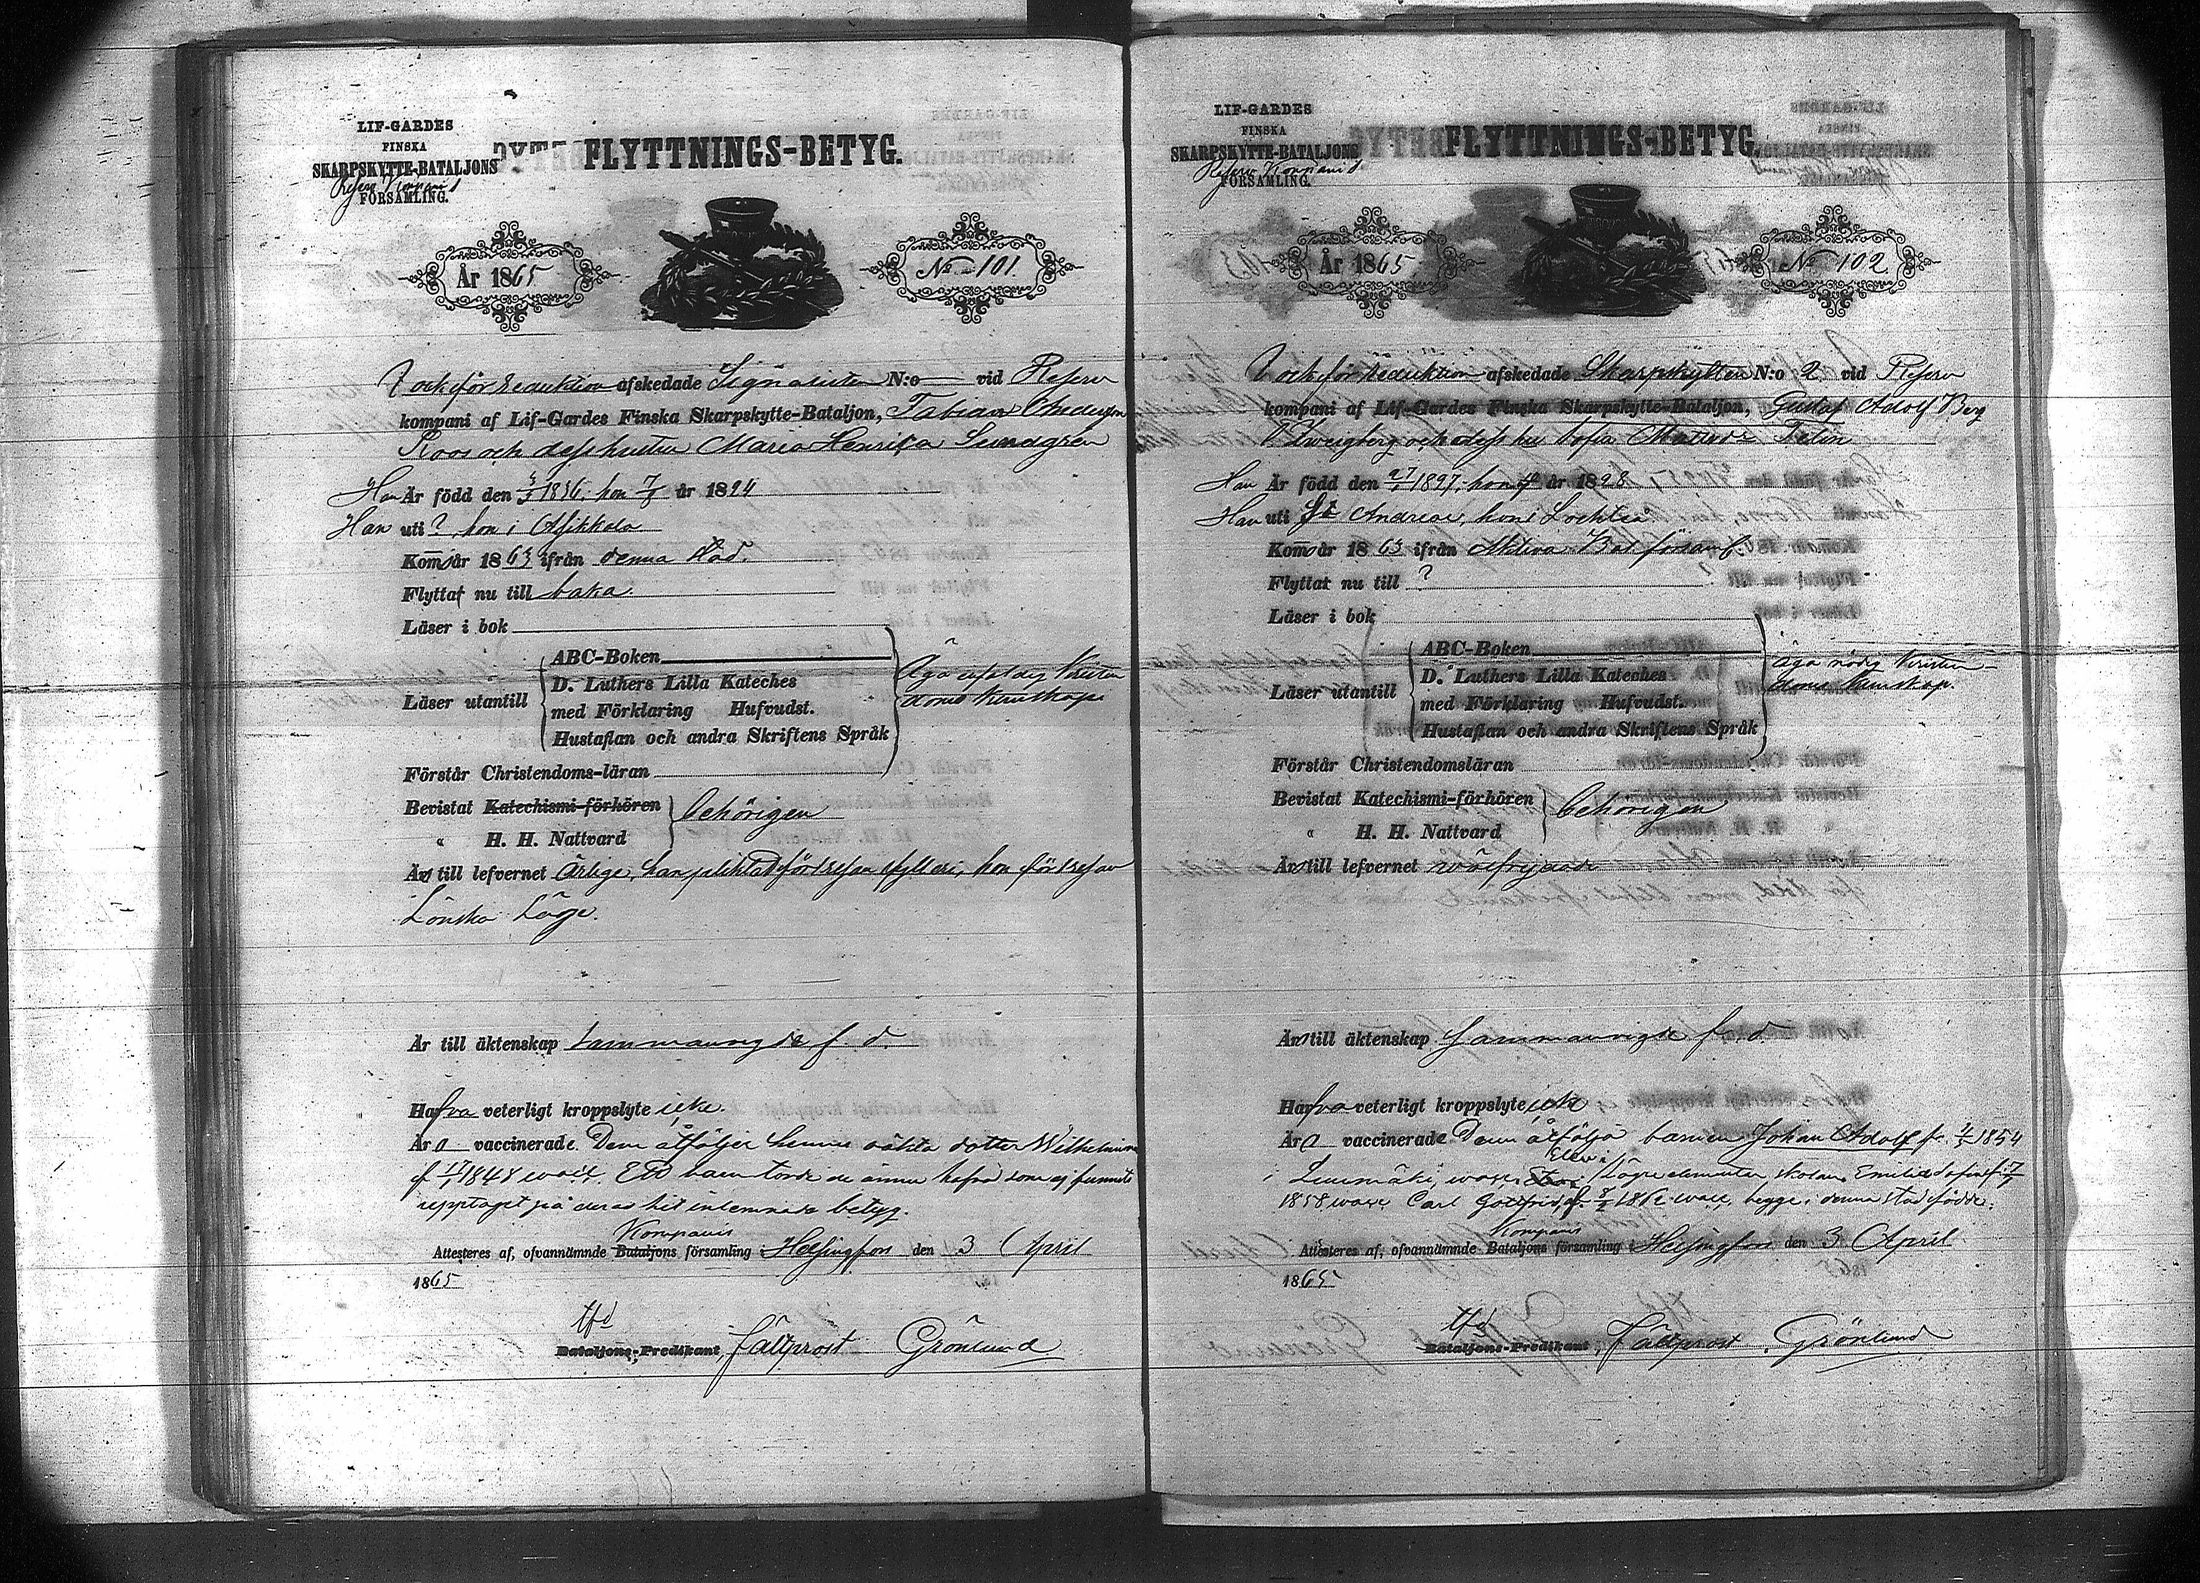 LIF-GARDES
FINSKA
SKARPSKYTTE-BATALJONS
Reserv Kompanid
FÖRSAMLING.
FLYTTNINGS-BETYG.
År 1865
No 101.
och för reduktion afskedade Signalisten N:o — vid Reserv
kompani af Lif-Gardes Finska Skarpskytte-Bataljon, Fabian
Roos och dess hustru Maria Henrica Lundgren
Han Är född den 1836, hon 7/8 år 1824
Han uti ?, hon i Asikkala
Kom år 1863 ifrån denna stad.
Flyttat nu till baka.
Läser i bok
Läser utantill
ABC-Boken
D. Luthers Lilla Kateches
med Förklaring Hufvudst.
Hustaflan och andra Skriftens Språk
Äga nödig Kristen
doms Kunskap
Förstår Christendoms-läran
Bevistat Katechismi-förhören
" H. H. Nattvard
behörigen
Är till lefvernet Ärlige, han pliktad för resan fylleri, hon för resan
Lönska Läge.
Är till äktenskap sammanvigde f. d.
Hafva veterligt kroppslyte icke.
Är o vaccinerade. Dem åtföljer hennes oäkta dotter Wilhelmina
f 1848 vacc. Ett barn torde de ännu hafva som ej funnits
upptaget på deras hit inlemnade betyg.
Kompanis
Attesteras af, ofvannämnde Bataljons församling i Helsingfors den 3 April
1865
tfd
Bataljons-Predikant, Fältprost Grönlund
LIF-GARDES
FINSKA
SKARPSKYTTE-BATALJONS
Reserv Kompanid
FÖRSAMLING.
FLYTTNINGS-BETYG.
År 1865
No 102
och för reduktion afskedade Skarpskytten N:o 2 vid Reserv
kompani af Lif-Gardes Finska Skarpskytte-Bataljon, Gustaf Adolf Berg
och dess hu Sofia Mathilda Felin
Han Är född den 1827, hon år 1828
Han uti St Andreae, hon i Lochtea
Kom år 1863 ifrån Aktiva Bat. församl
Flyttat nu till ?
Läser i bok
Läser utantill
ABC-Boken
D. Luthers Lilla Kateches
med Förklaring Hufvudst.
Hustaflan och andra Skriftens Språk
äga nödig Kristen-
doms kunskap.
Förstår Christendomsläran
Bevistat Katechismi-förhören
" H. H. Nattvard
behörigen
Är till lefvernet välfrejdade
Är till äktenskap Sammanvigde f. d
Hafva veterligt kroppslyte icke
Är o vaccinerade Dem åtfölja barnen Johan Adolf f. 1854
Elev i
i Lemmäki, vacc. lägre elementar skolan, Emilia Sofia f. 17/7
1858 vacc Carl Gottfrid, f. 8/2 1862 vacc, begge i denna stad födde.
Kompanis
Attesteras af, ofvannämnde Bataljons församling i Helsingfors den 3 April
1865
tfd
Bataljons-Predikant, Fältprost Grönlund